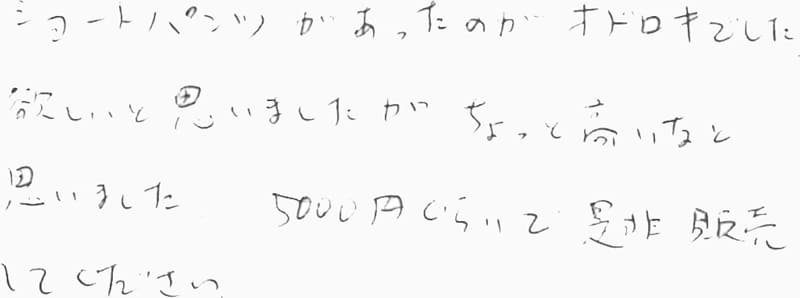 ショートパンツがあったのがオドロキでした
欲しいと思いましたが ちょっと高いなと
思いました 5000円くらいで是非販売
してください